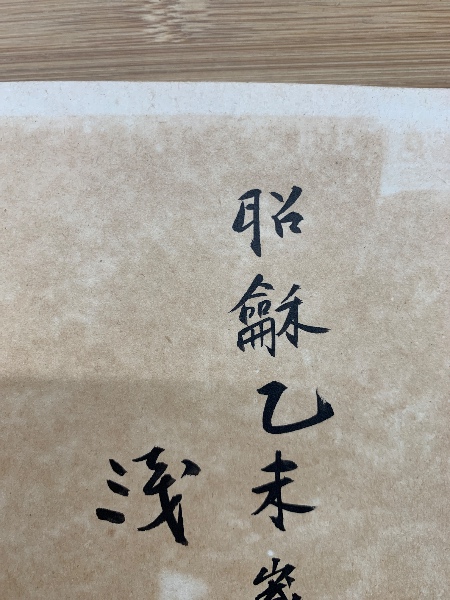 昭龢乙未
浅